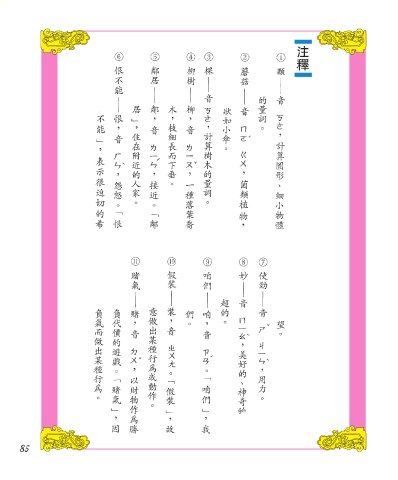 注釋
①顆——音 ㄎㄜ，計算圓形、細小物體
的量詞。
②蘑菇——音 ㄇㄛˊ ㄍㄨ，菌類植物，
狀如小傘。
③棵——音 ㄎㄜ，計算樹木的量詞。
④柳樹——柳，音 ㄌㄧㄡˇ，一種落葉喬
木，枝細長而下垂。
⑤鄰居——鄰，音 ㄌㄧㄣˊ，接近。「鄰
居」，住在附近的人家。
⑥恨不能——恨，音 ㄏㄣˋ，怨怒。「恨
不能」，表示很迫切的希
望。
⑦使勁——音 ㄕˇ ㄐㄧㄣˋ，用力。
⑧妙——音 ㄇㄧㄠˋ，美好的、神奇
超的。
⑨咱們——咱，音 ㄗㄢˊ。「咱們」，我
們。
⑩假裝——裝，音 ㄓㄨㄤ。「假裝」，故
意做出某種行為或動作。
⑪賭氣——賭，音 ㄉㄨˇ，以財物作為勝
負代價的遊戲。「賭氣」，因
負氣而做出某種行為。
85